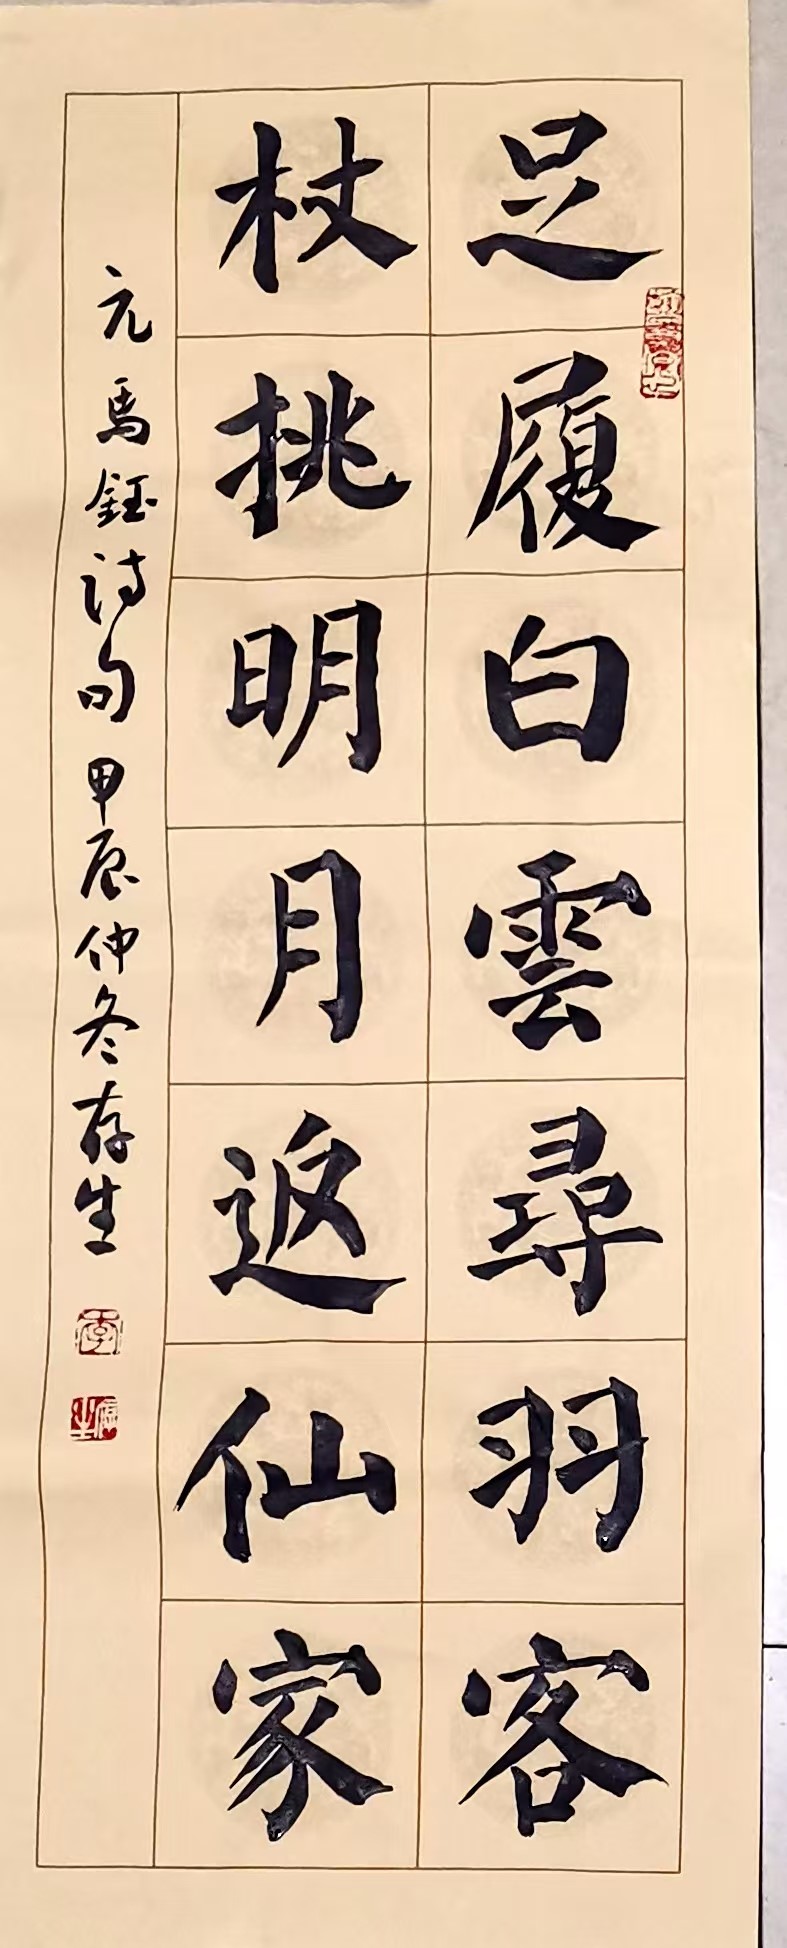 足履白雲尋羽客
杖挑明月返仙家
元馬鈺诗句甲辰仲冬存生